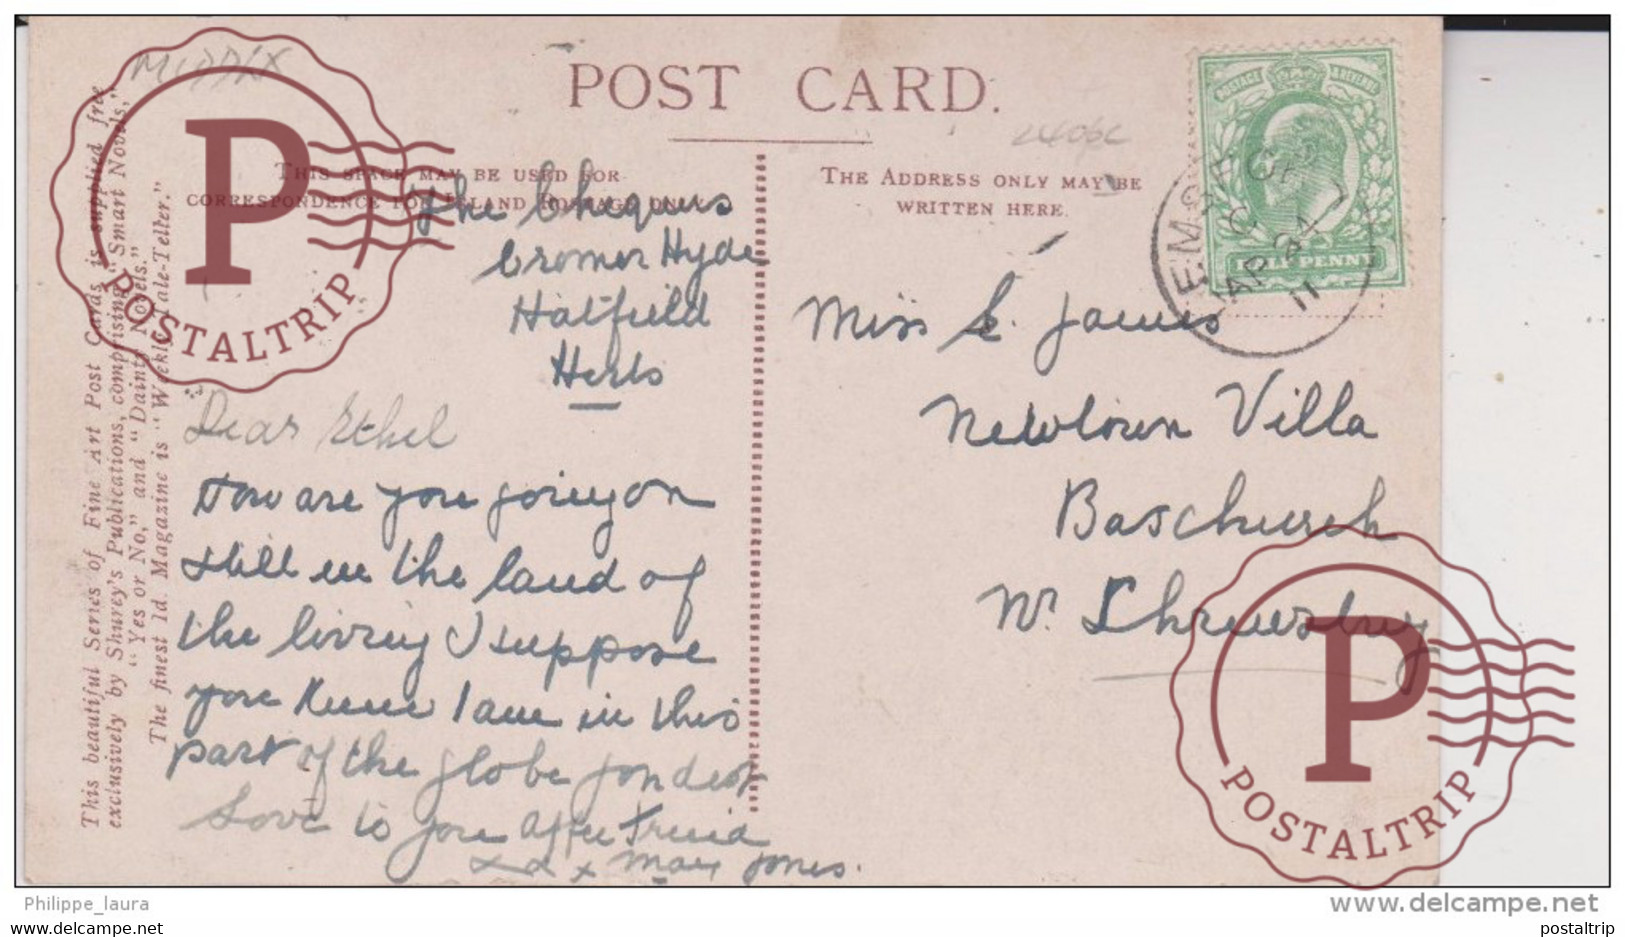 MIDDLX
POST CARD.
THIS SPACE MAY BE USED FOR
CORRESPONDENCE FOR INLAND POSTAGE ONLY
THE ADDRESS ONLY MAY BE
WRITTEN HERE.
POSTAGE REVENUE
HALF PENNY
EMSFOR
AP 24
11
This beautiful Series of Fine Art Post Cards is supplied free
exclusively by Shurey's Publications, comprising "Smart Novels,"
"Yes or No," and "Dainty Novels."
The finest 1d. Magazine is "Weekly Tale-Teller."
The Chequers
Cromer Hyde
Hatfield
Herts
Dear Ethel
How are you going on
still in the land of
the living I suppose
you know I am in this
part of the globe fondest
Love to you Affec Friend
x x x May Jones.
Miss E. James
Newtown Villa
Baschurch
Nr. Shrewsbury
P
POSTALTRIP
P
POSTALTRIP
Philippe_laura
www.delcampe.net
postaltrip